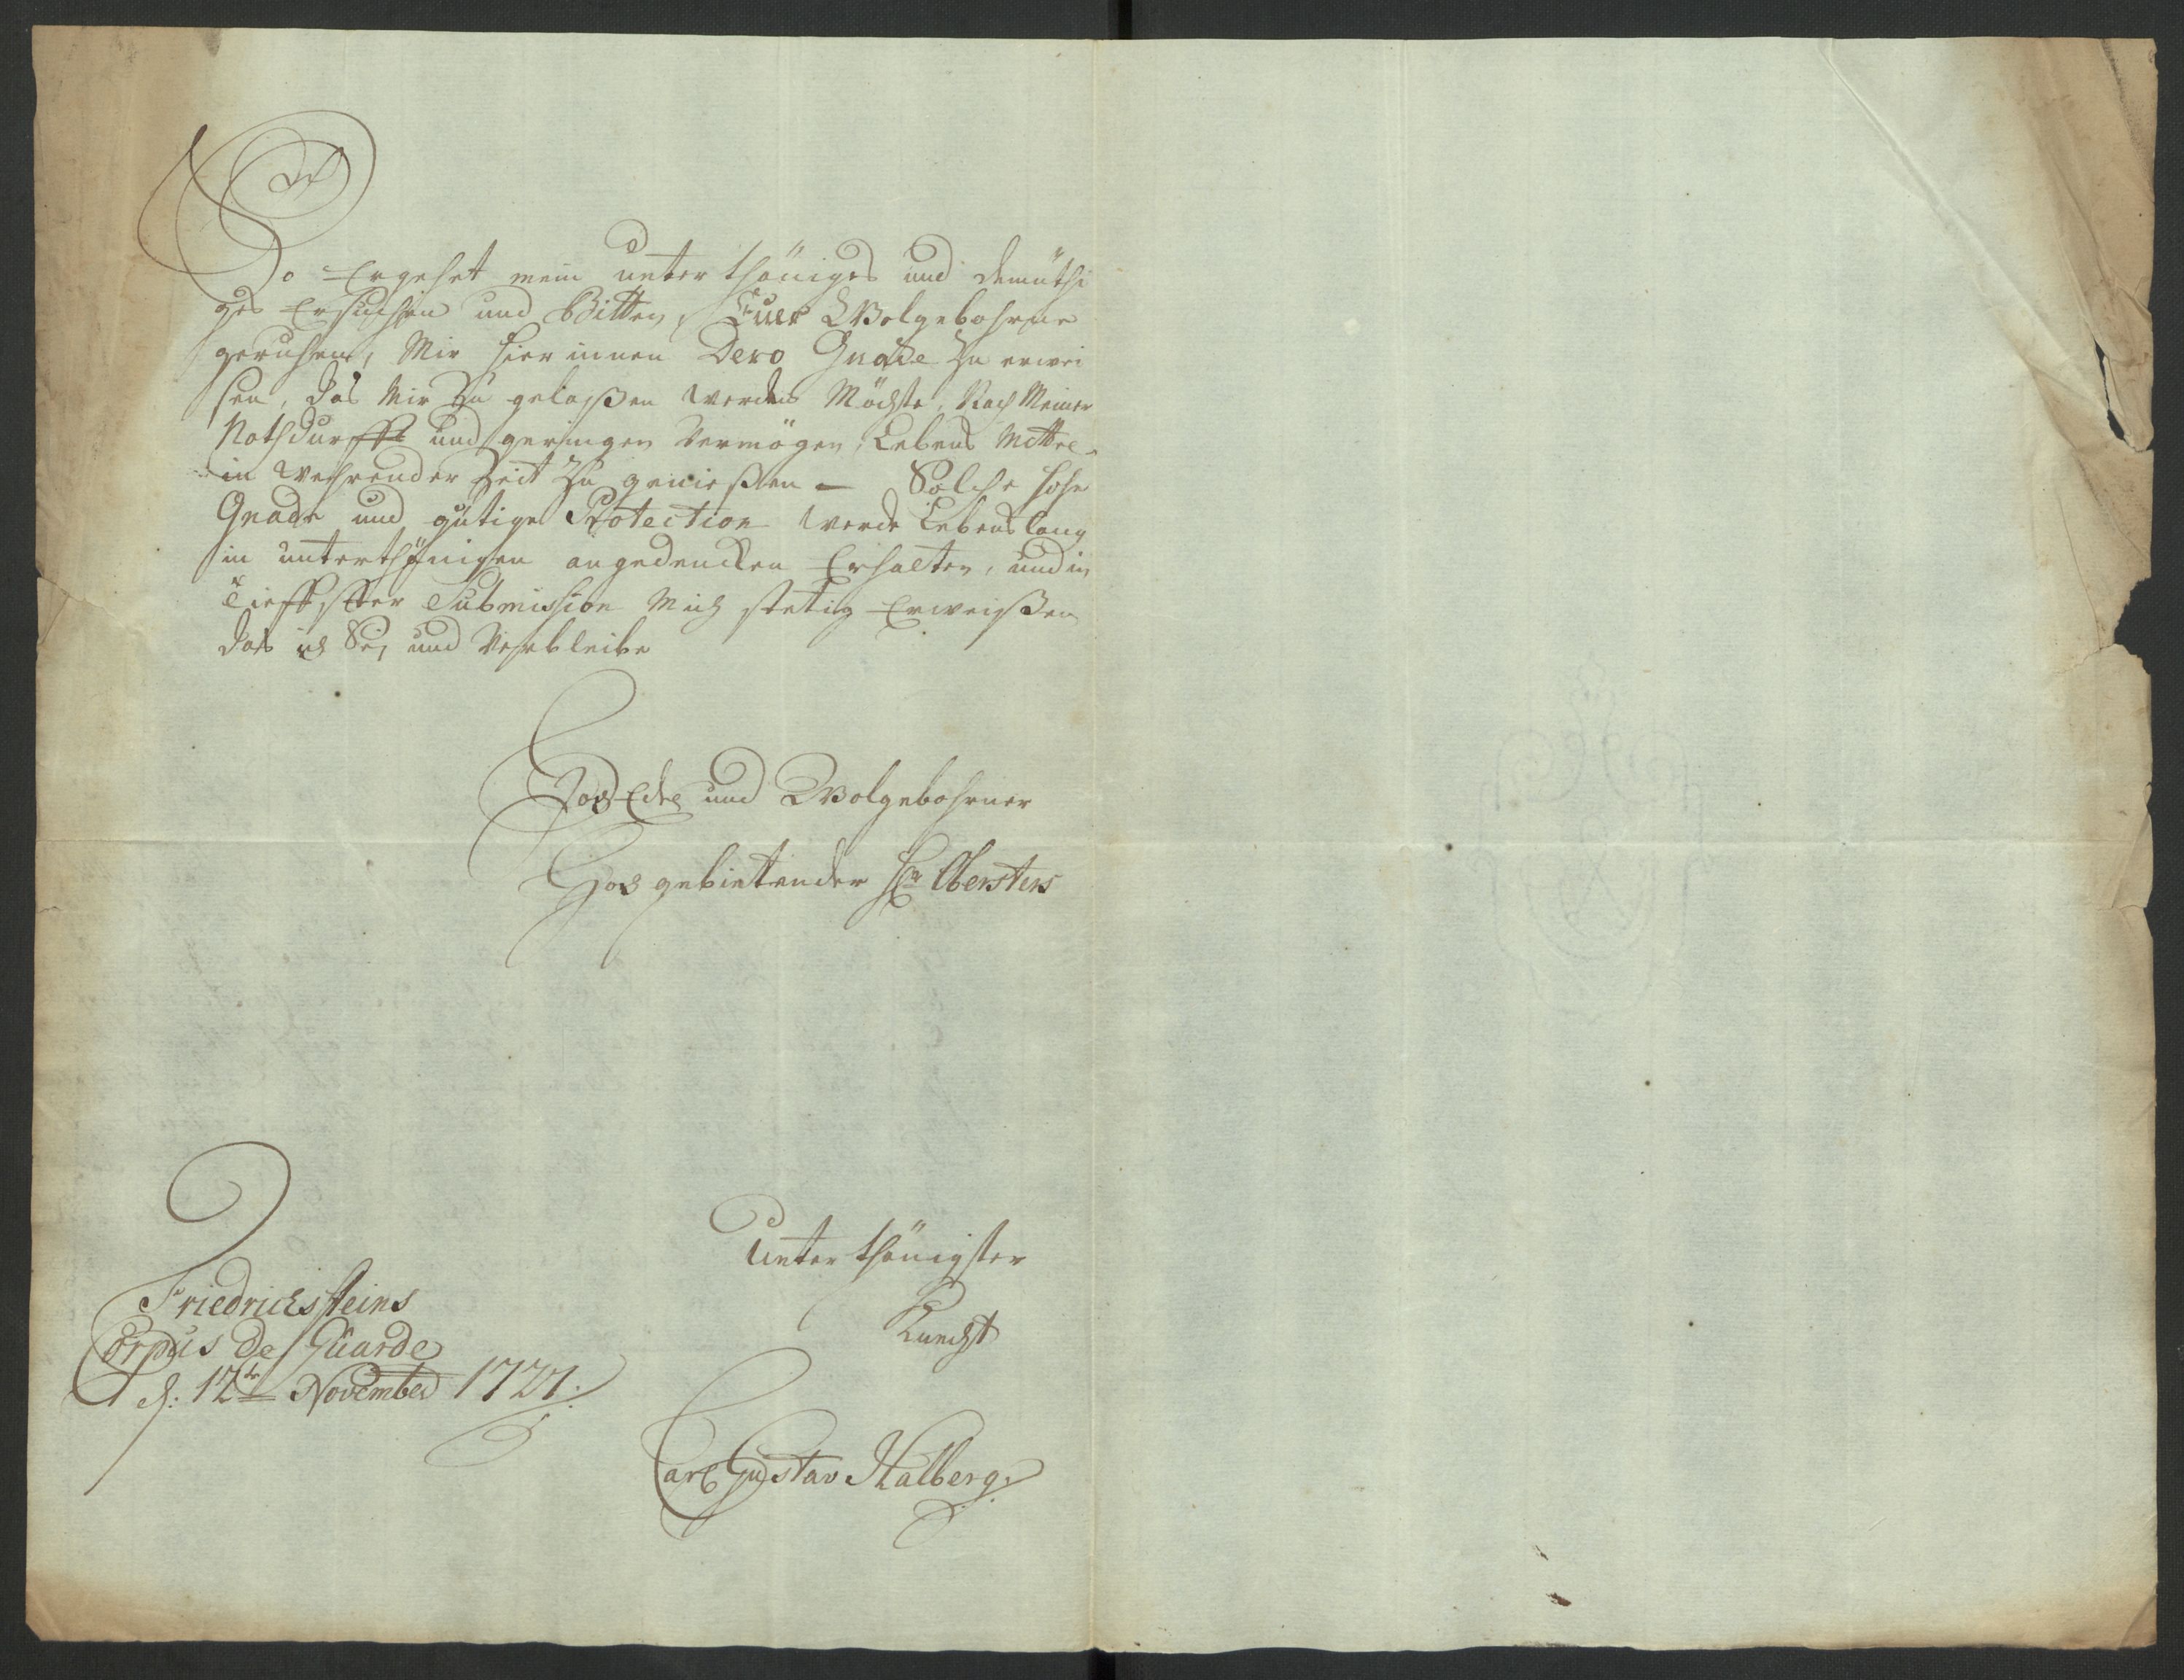 So Ergehet mein unterthäniges und demüthi
ges Ersuchen und Bitten, Euer Wolgebohrne
geruhen, Mir hierinnen Dero Gnade zu erwei
sen, das Mir zu gelaßen werden Möchte, Nach Meiner
Nothdurfft und geringen Vermögen, Lebens Mittel
in wehrender Zeit zu genießen – Solche hohe
Gnade und gütige Protection werde Lebenslang
in unterthänigen angedencken Erhalten, und in
Tieffster Submission Mich stetig Erweißen
das ich Sei und Verbleibe
HochEdel und Wolgebohrner
Hochgebietender H. Obersters
Unterthänigster
Knecht
Friedrichssteins
Corpus de Guarde
d: 12te November 1727.
Carl Gustav Halberg.